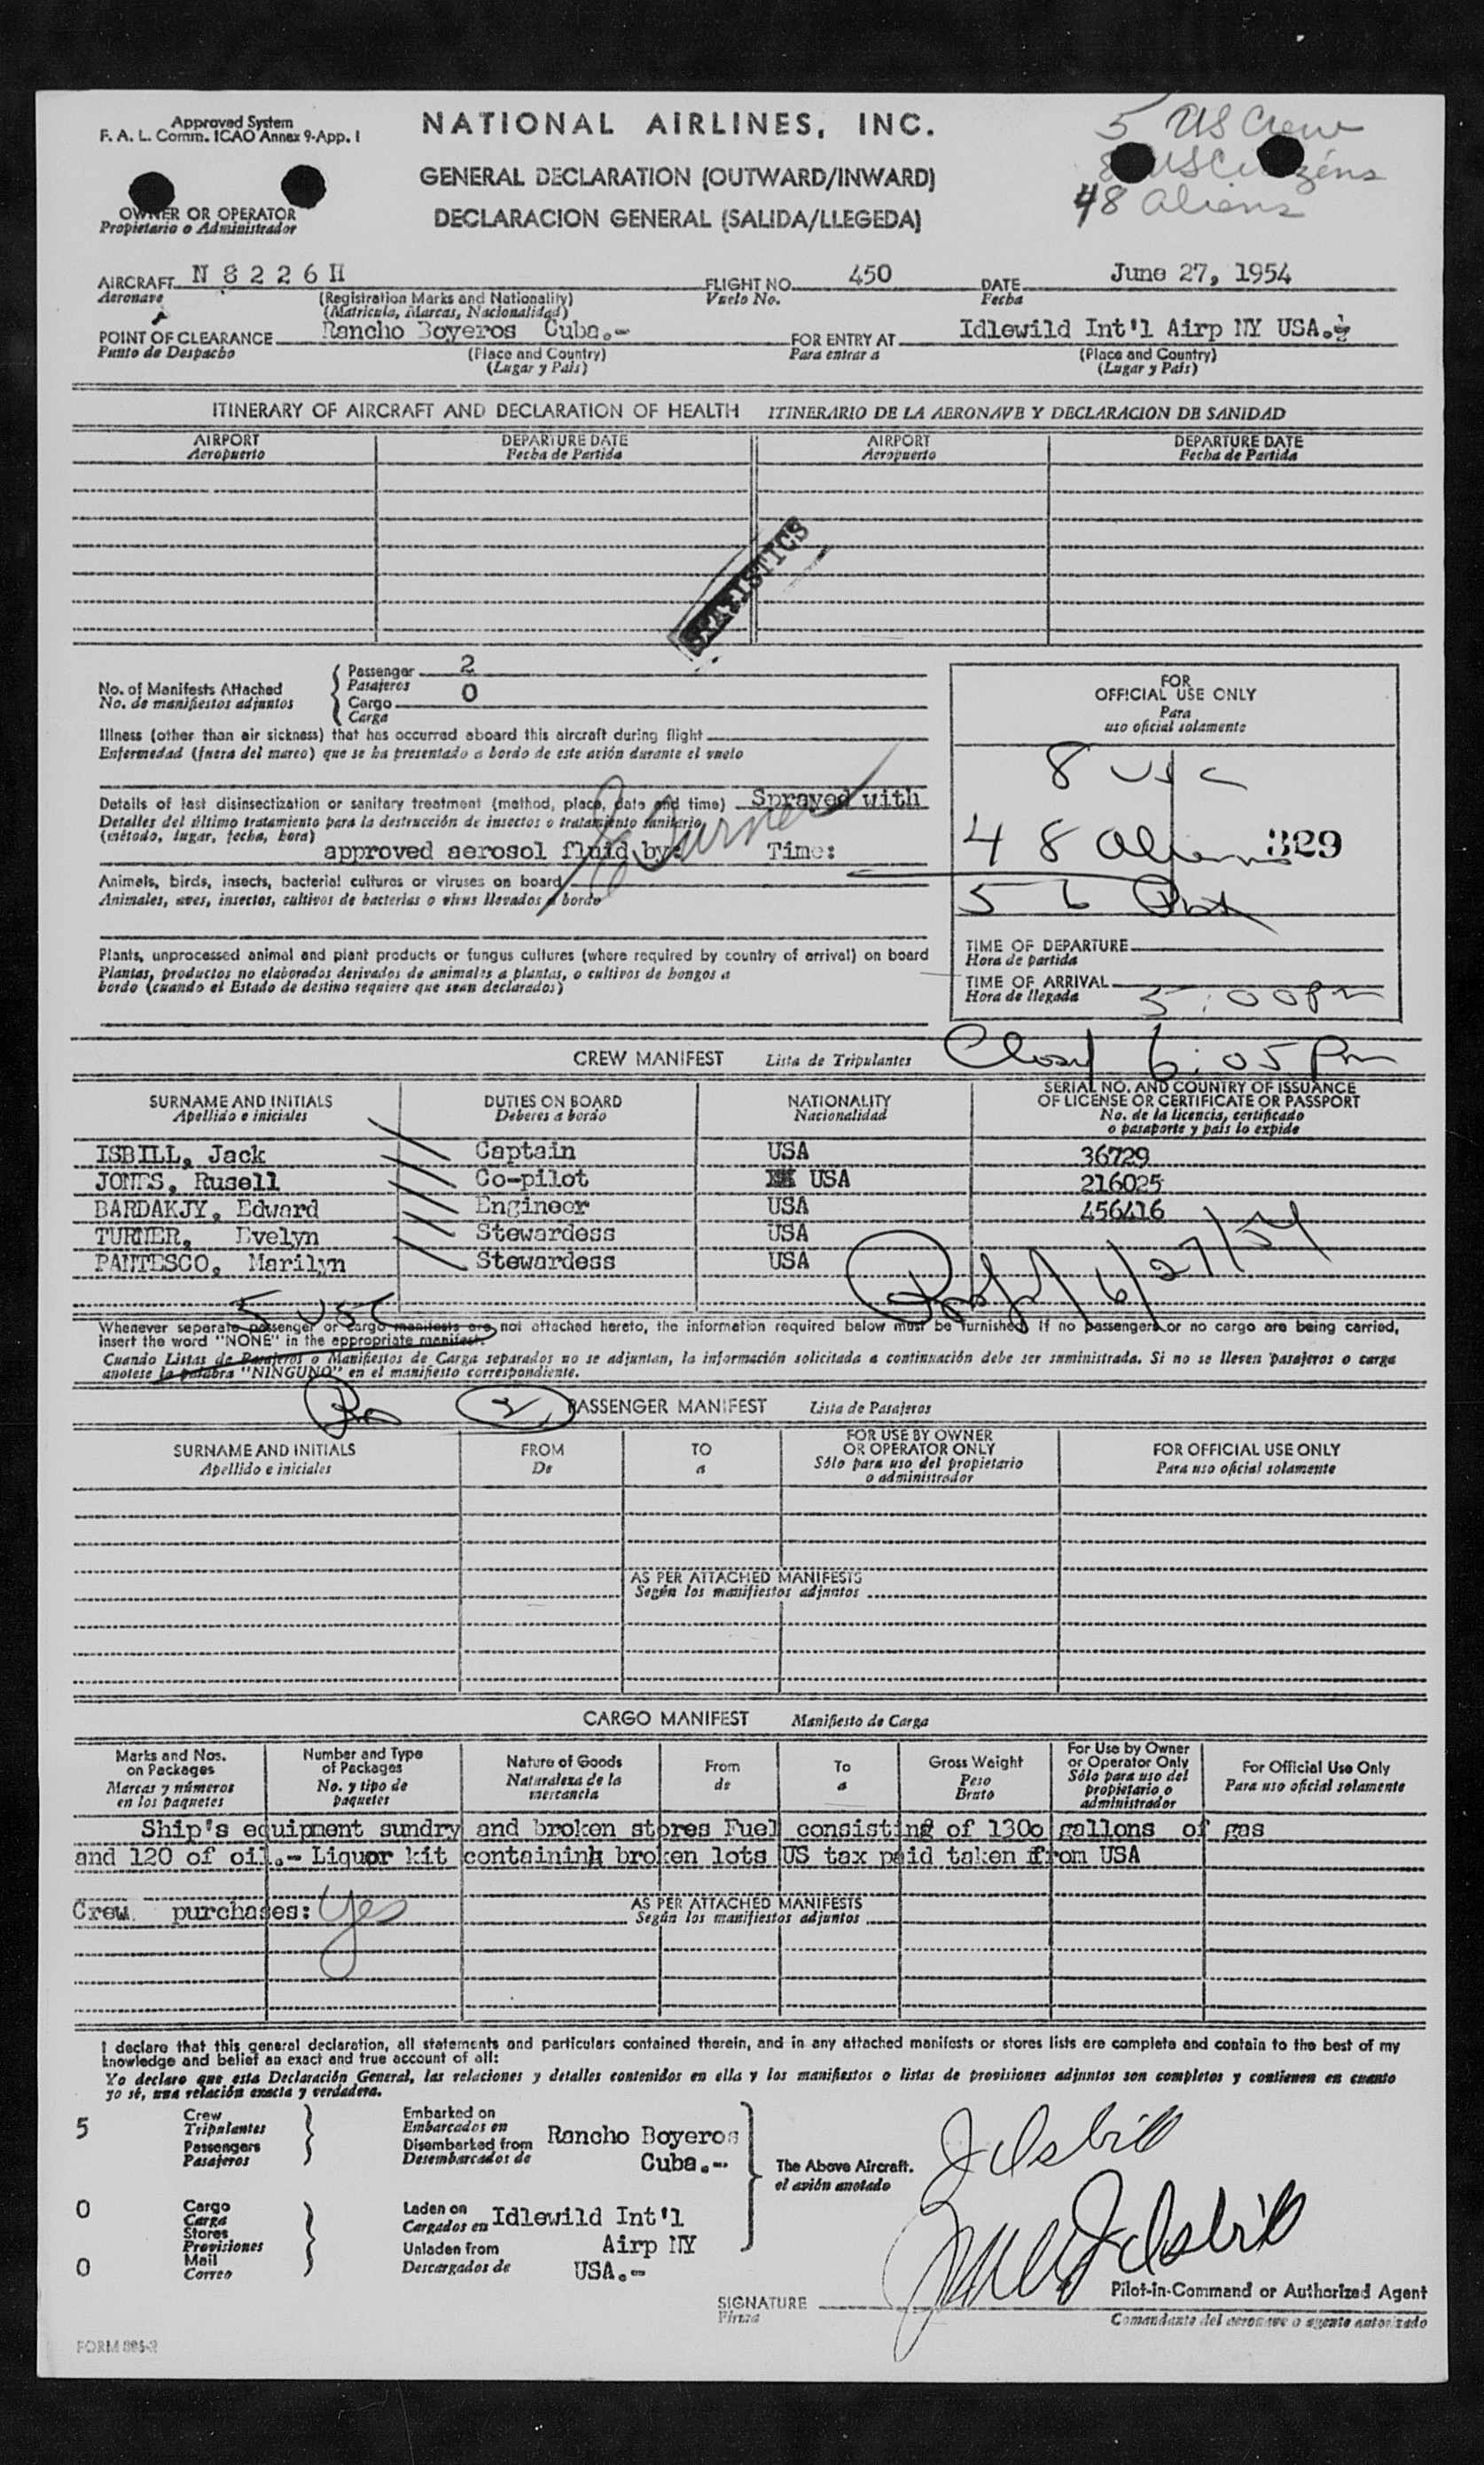 Approved System
F. A. L. Comm. ICAO Annex 9-App. I
NATIONAL AIRLINES, INC.
GENERAL DECLARATION (OUTWARD/INWARD)
DECLARACION GENERAL (SALIDA/LLEGEDA)
5 US Crew
8 US Citizens
48 aliens
OWNER OR OPERATOR
Propietario o Administrador
AIRCRAFT N 8 2 2 6 H FLIGHT NO. 450 DATE June 27, 1954
Aeronave (Registration Marks and Nationality) Vuelo No. Fecha
(Matricula, Marcas, Nacionalidad)
POINT OF CLEARANCE Rancho Boyeros Cuba.- FOR ENTRY AT Idlewild Int'l Airp NY USA.
Punto de Despacho (Place and Country) Para entrar a (Place and Country)
(Lugar y Pais) (Lugar y Pais)
ITINERARY OF AIRCRAFT AND DECLARATION OF HEALTH ITINERARIO DE LA AERONAVE Y DECLARACION DE SANIDAD
AIRPORT DEPARTURE DATE AIRPORT DEPARTURE DATE
Aeropuerto Fecha de Partida Aeropuerto Fecha de Partida
STATISTICS
No. of Manifests Attached Passenger 2
No. de manifiestos adjuntos Pasajeros
Cargo 0
Carga
Illness (other than air sickness) that has occurred aboard this aircraft during flight
Enfermedad (fuera del mareo) que se ha presentado a bordo de este avión durante el vuelo
Details of last disinsectization or sanitary treatment (method, place, date and time) Sprayed with
Detalles del último tratamiento para la destrucción de insectos o tratamiento sanitario,
(método, lugar, fecha, hora)
approved aerosol fluid by: E Turner Time:
Animals, birds, insects, bacterial cultures or viruses on board
Animales, aves, insectos, cultivos de bacterias o virus llevados a bordo
Plants, unprocessed animal and plant products or fungus cultures (where required by country of arrival) on board
Plantas, productos no elaborados derivados de animales a plantas, o cultivos de hongos a
bordo (cuando el Estado de destino requiere que sean declarados)
FOR
OFFICIAL USE ONLY
Para
uso oficial solamente
8 USC
48 Aliens 329
56
TIME OF DEPARTURE
Hora de partida
TIME OF ARRIVAL 5:00 Pm
Hora de llegada
Closed 6:05 Pm
CREW MANIFEST Lista de Tripulantes
SURNAME AND INITIALS DUTIES ON BOARD NATIONALITY SERIAL NO. AND COUNTRY OF ISSUANCE
Apellido e iniciales Deberes a bordo Nacionalidad OF LICENSE OR CERTIFICATE OR PASSPORT
No. de la licencia, certificado
o pasaporte y país lo expide
ISBILL, Jack Captain USA 36729
JONES, Rusell Co-pilot USA 216025
BARDAKJY, Edward Engineer USA 456416
TURNER, Evelyn Stewardess USA
PANTESCO, Marilyn Stewardess USA
6/27/54
5 USC
Whenever separate passenger or cargo manifests are not attached hereto, the information required below must be furnished. If no passengers or no cargo are being carried,
insert the word "NONE" in the appropriate manifest.
Cuando Listas de Pasajeros o Manifiestos de Carga separados no se adjuntan, la información solicitada a continuación debe ser suministrada. Si no se lleven pasajeros o carga
anotese la palabra "NINGUNO" en el manifiesto correspondiente.
2 PASSENGER MANIFEST Lista de Pasajeros
SURNAME AND INITIALS FROM TO FOR USE BY OWNER FOR OFFICIAL USE ONLY
Apellido e iniciales De a OR OPERATOR ONLY Para uso oficial solamente
Sólo para uso del propietario
o administrador
AS PER ATTACHED MANIFESTS
Según los manifiestos adjuntos
CARGO MANIFEST Manifiesto de Carga
Marks and Nos. Number and Type Nature of Goods From To Gross Weight For Use by Owner For Official Use Only
on Packages of Packages Naturaleza de la de a Peso or Operator Only Para uso oficial solamente
Marcas y números No. y tipo de mercancia Bruto Sólo para uso del
en los paquetes paquetes propietario o
administrador
Ship's equipment sundry and broken stores Fuel consisting of 1300 gallons of gas
and 120 of oil.- Liquor kit containing broken lots US tax paid taken from USA
Crew purchases: yes
AS PER ATTACHED MANIFESTS
Según los manifiestos adjuntos
I declare that this general declaration, all statements and particulars contained therein, and in any attached manifests or stores lists are complete and contain to the best of my
knowledge and belief an exact and true account of all:
Yo declaro que esta Declaración General, las relaciones y detalles contenidos en ella y los manifiestos o listas de provisiones adjuntos son completos y contienen en cuanto
yo sé, una relación exacta y verdadera.
5 Crew Embarked on
Tripulantes Embarcados en Rancho Boyeros
Passengers Disembarked from
Pasajeros Desembarcados de Cuba.-
The Above Aircraft.
el avión anotado
J Isbill
0 Cargo Laden on
Carga Cargados en Idlewild Int'l
Stores
Provisiones Unladen from Airp NY
0 Mail Descargados de USA.-
Correo
J Isbill
Pilot-in-Command or Authorized Agent
SIGNATURE
Firma
Comandante del aeronave o agente autorizado
FORM 895-2